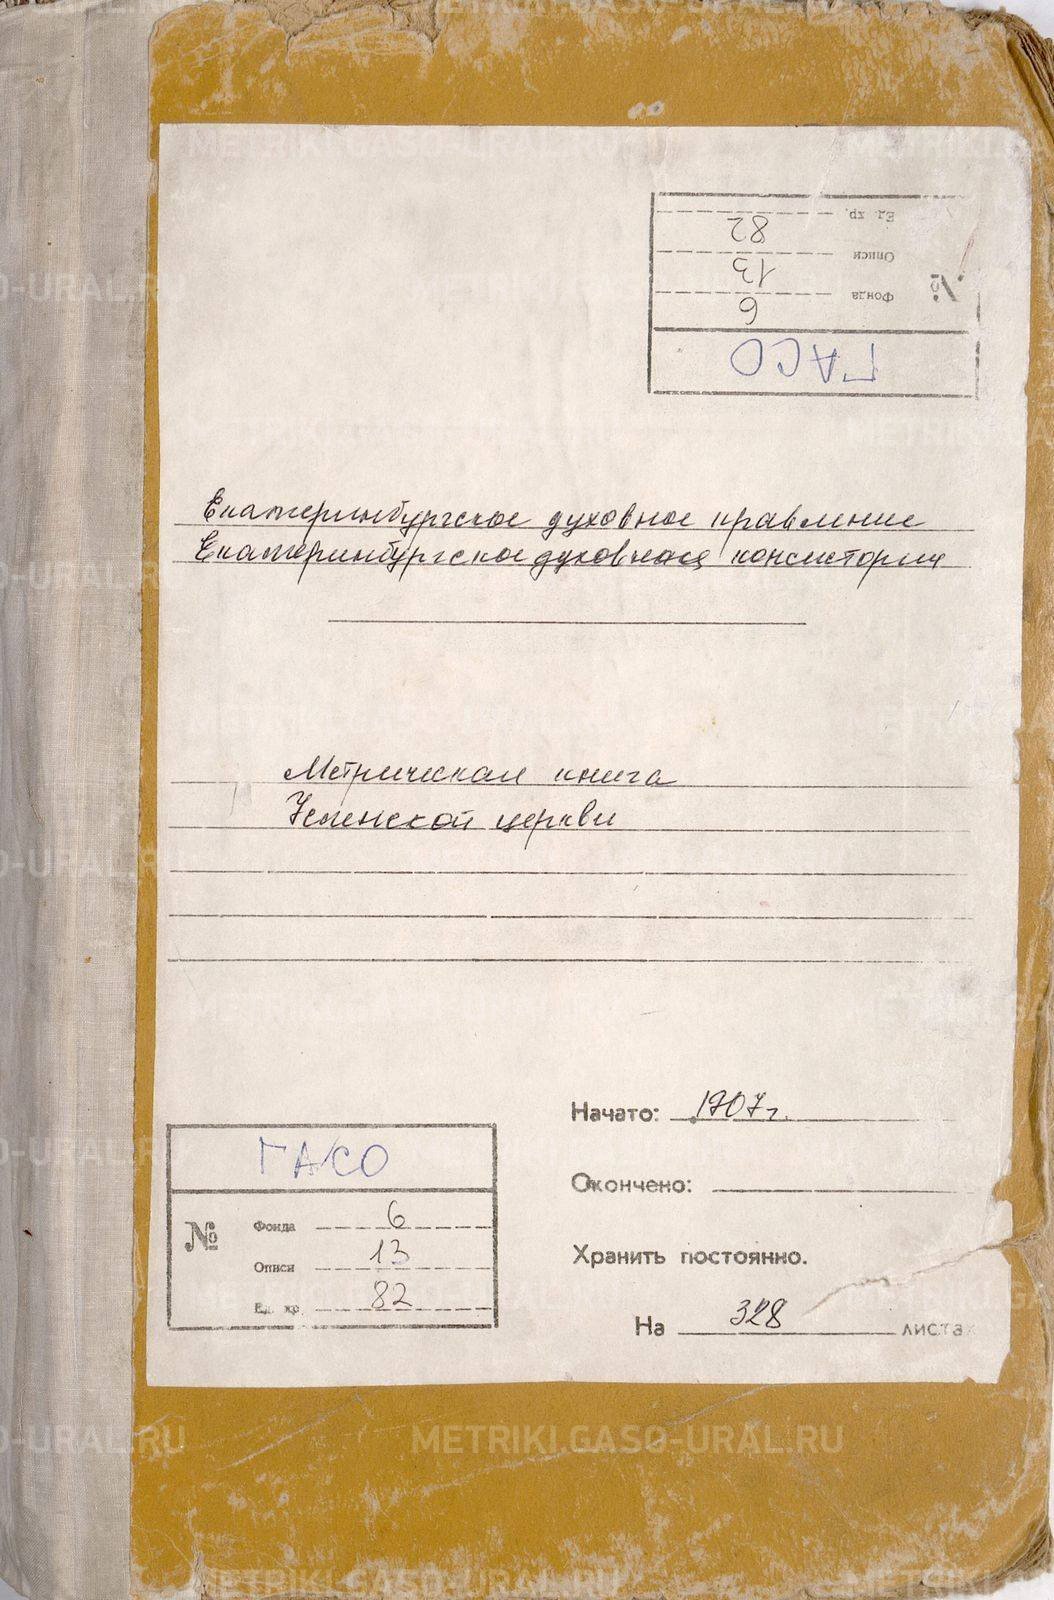 Ед. хр. 82
Описи 13
№ Фонда 6
ГАСО
Екатеринбургское духовное правление
Екатеринбургская духовная консистория
Метрическая книга
Успенской церкви
Начато: 1907 г.
Окончено:
Хранить постоянно.
На 328 листах
ГАСО
№ Фонда 6
Описи 13
Ед. хр. 82
METRIKI.GASO-URAL.RU